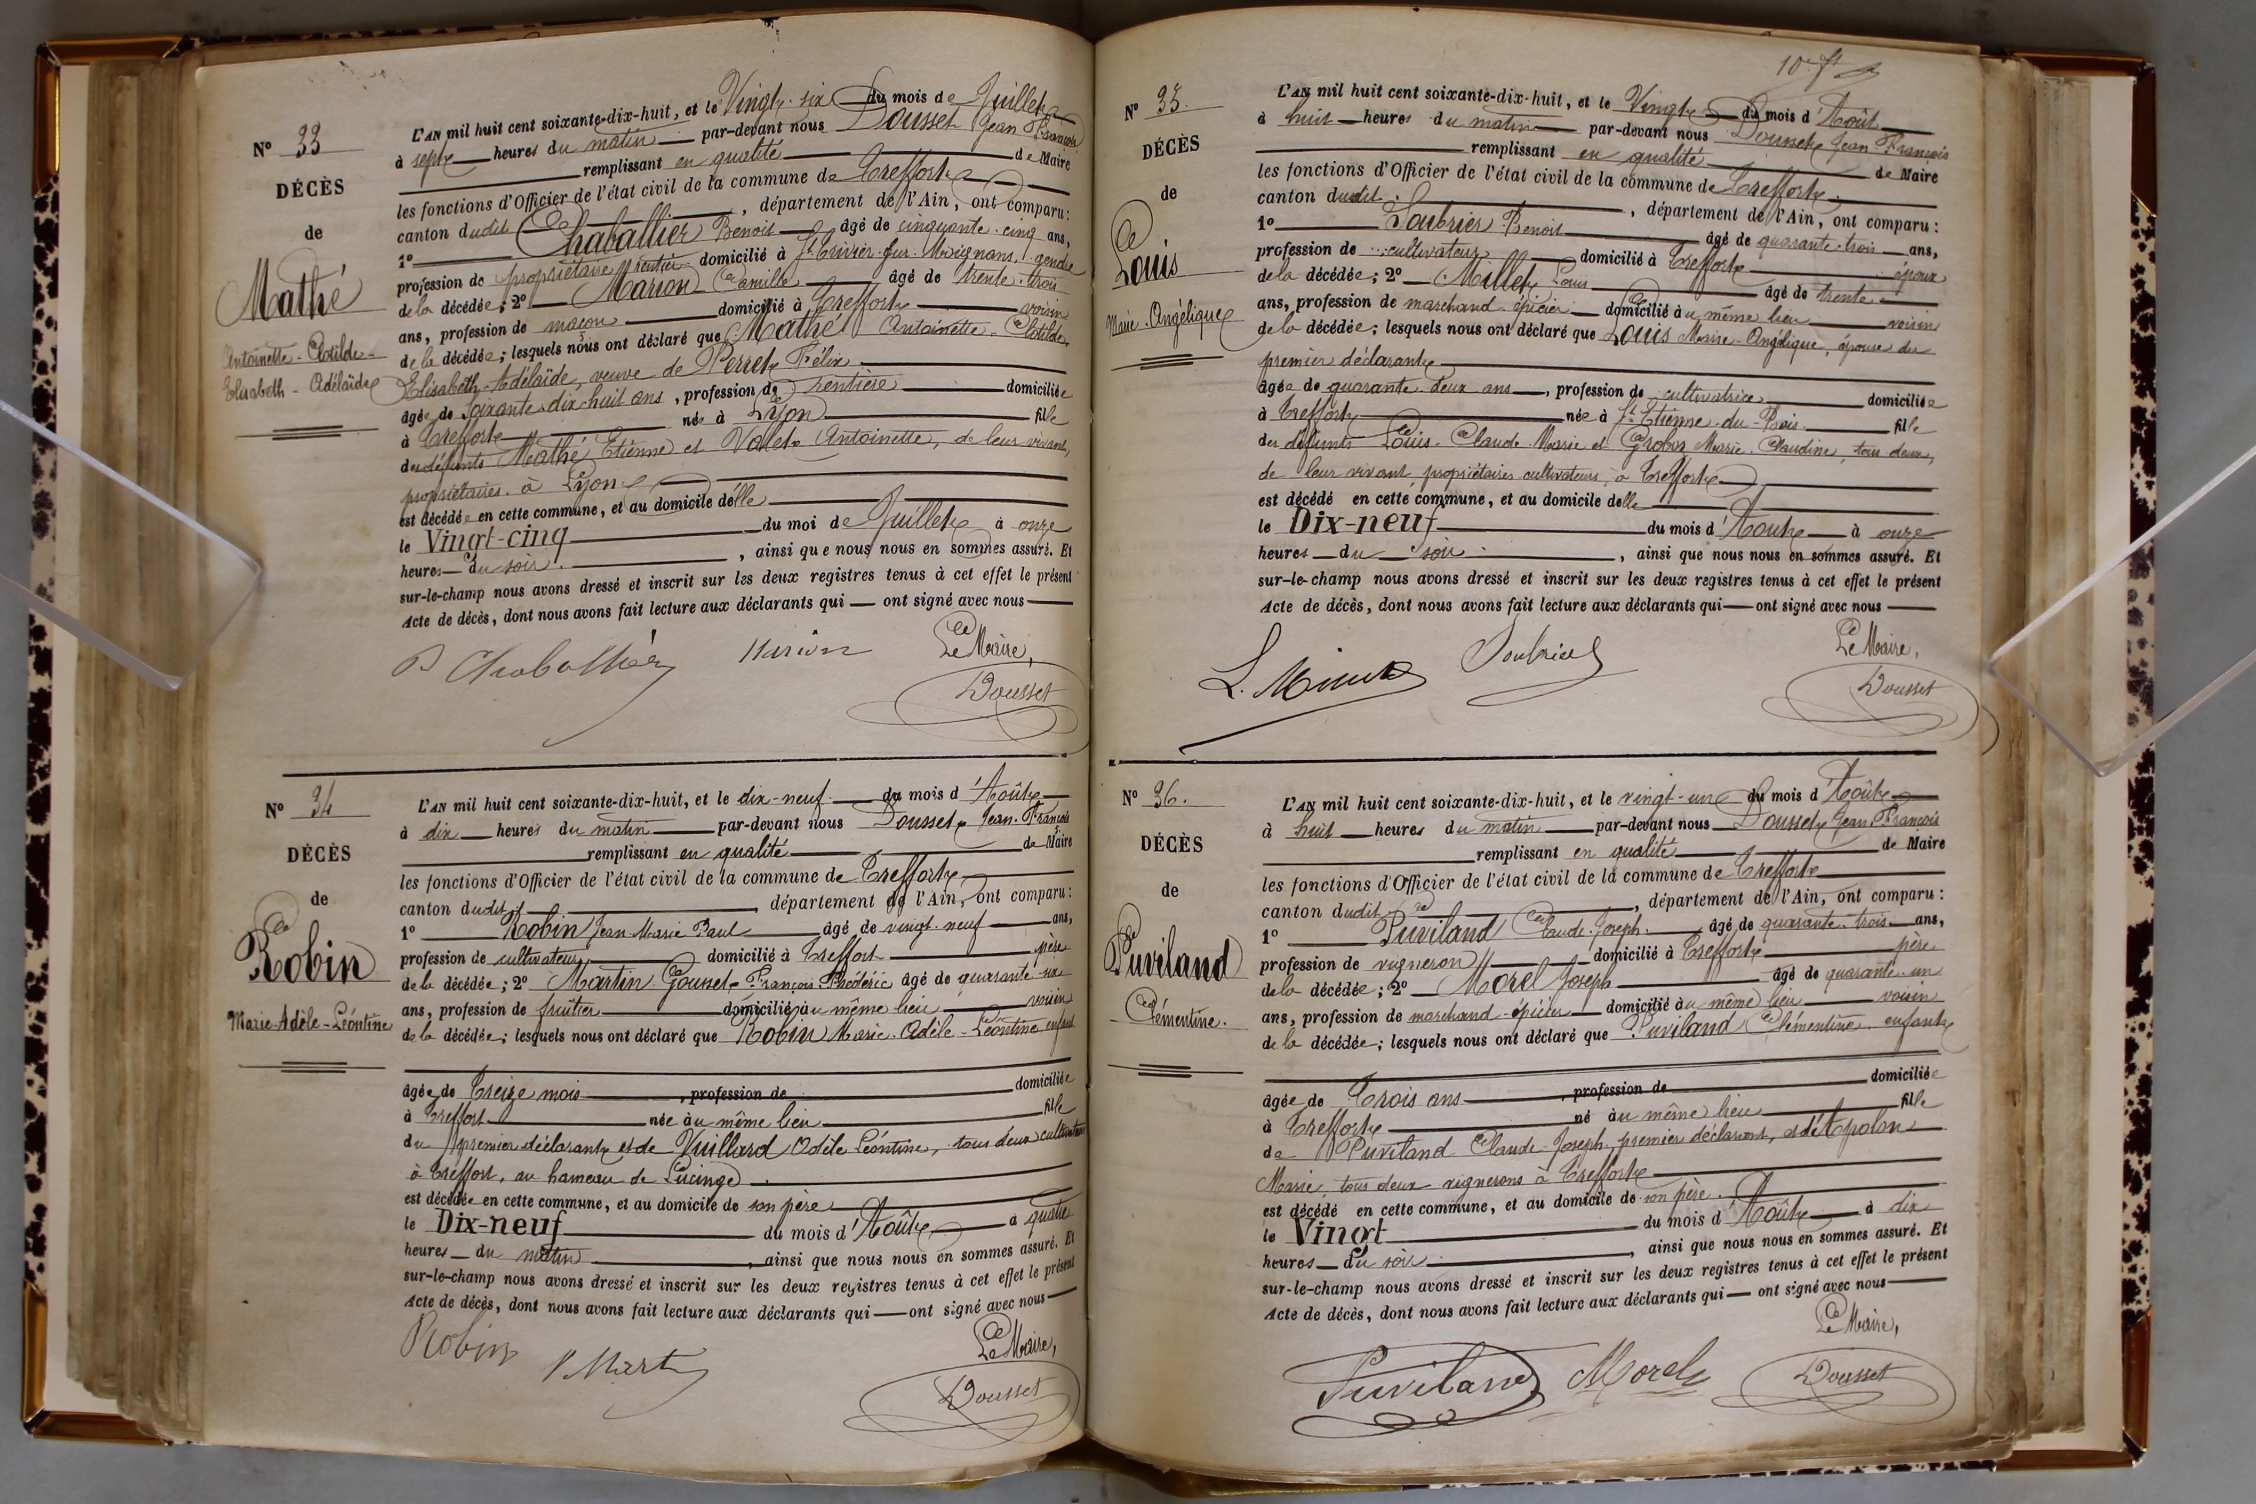 N° 33
DÉCÈS
de
Mathé
Antoinette-Clotilde-
Elisabeth-Adélaïde
L'AN mil huit cent soixante-dix-huit, et le Vingt-six du mois de Juillet
à sept heures du matin par-devant nous Dousset Jean François
remplissant en qualité de Maire
les fonctions d'Officier de l'état civil de la commune de Treffort
canton dudit , département de l'Ain, ont comparu:
1° Chaballier Benoit âgé de cinquante-cinq ans,
profession de propriétaire rentier domicilié à St Trivier-sur-Moignans, gendre
de la décédée; 2° Marion Camille âgé de trente-trois
ans, profession de maçon domicilié à Treffort voisin
de la décédée; lesquels nous ont déclaré que Mathé Antoinette-Clotilde,
Elisabeth-Adélaïde, veuve de Perret Félix
âgée de soixante-dix-huit ans, profession de rentière domiciliée
à Treffort née à Lyon fille
des défunts Mathé Etienne et Vallet Antoinette, de leur vivant,
propriétaires à Lyon
est décédée en cette commune, et au domicile d'elle
le Vingt-cinq du moi de Juillet à onze
heures du soir. , ainsi que nous nous en sommes assuré. Et
sur-le-champ nous avons dressé et inscrit sur les deux registres tenus à cet effet le présent
Acte de décès, dont nous avons fait lecture aux déclarants qui ont signé avec nous
B Chaballier Marion Le Maire,
Dousset
N° 34
DÉCÈS
de
Robin
Marie-Adèle-Léontine
L'AN mil huit cent soixante-dix-huit, et le dix-neuf du mois d'Août
à dix heures du matin par-devant nous Dousset Jean-François
remplissant en qualité de Maire
les fonctions d'Officier de l'état civil de la commune de Treffort
canton dudit , département de l'Ain, ont comparu:
1° Robin Jean Marie Paul âgé de vingt-neuf ans,
profession de cultivateur domicilié à Treffort père
de la décédée; 2° Martin Gousset François-Frédéric âgé de quarante-six
ans, profession de fruitier domicilié au même lieu voisin
de la décédée; lesquels nous ont déclaré que Robin Marie-Adèle-Léontine enfant
âgée de Treize mois , profession de domiciliée
à Treffort née au même lieu fille
du premier déclarant et de Vuillard Adèle Léontine, tous deux cultivateurs
à Treffort, au hameau de Lucinge
est décédée en cette commune, et au domicile de son père
le Dix-neuf du mois d'Août à quatre
heures du matin , ainsi que nous nous en sommes assuré. Et
sur-le-champ nous avons dressé et inscrit sur les deux registres tenus à cet effet le présent
Acte de décès, dont nous avons fait lecture aux déclarants qui ont signé avec nous
Robin Le Maire,
Dousset
N° 35.
DÉCÈS
de
Louis
Marie-Angélique
L'AN mil huit cent soixante-dix-huit, et le Vingt du mois d'Août
à huit heures du matin par-devant nous Dousset Jean-François
remplissant en qualité de Maire
les fonctions d'Officier de l'état civil de la commune de Treffort
canton dudit. , département de l'Ain, ont comparu:
1° Soubrier Benoit âgé de quarante-trois ans,
profession de cultivateur domicilié à Treffort époux
de la décédée; 2° Millet Louis âgé de trente
ans, profession de marchand-épicier domicilié au même lieu voisin
de la décédée; lesquels nous ont déclaré que Louis Marie-Angélique, épouse du
premier déclarant
âgée de quarante-deux ans, profession de cultivatrice domiciliée
à Treffort née à St Etienne-du-Bois fille
des défunts Louis-Claude-Marie et Marie-Claudine, tous deux,
de leur vivant, propriétaires cultivateurs, à Treffort
est décédé en cette commune, et au domicile d'elle
le Dix-neuf du mois d'Août à onze
heures du soir , ainsi que nous nous en sommes assuré. Et
sur-le-champ nous avons dressé et inscrit sur les deux registres tenus à cet effet le présent
Acte de décès, dont nous avons fait lecture aux déclarants qui ont signé avec nous
Soubrier Le Maire,
Dousset
N° 36.
DÉCÈS
de
Puviland
Clémentine.
L'AN mil huit cent soixante-dix-huit, et le vingt-un du mois d'Août
à huit heures du matin par-devant nous Dousset Jean François
remplissant en qualité de Maire
les fonctions d'Officier de l'état civil de la commune de Treffort
canton dudit , département de l'Ain, ont comparu:
1° Puviland Claude-Joseph âgé de quarante-trois ans,
profession de vigneron domicilié à Treffort père
de la décédée; 2° Morel Joseph âgé de quarante-un
ans, profession de marchand-épicier domicilié au même lieu voisin
de la décédée; lesquels nous ont déclaré que Puviland Clémentine enfant
âgée de Trois ans , profession de domiciliée
à Treffort né au même lieu fille
de Puviland Claude-Joseph, premier déclarant, et d'Apolon
Marie, tous deux vignerons à Treffort
est décédé en cette commune, et au domicile de son père.
le Vingt du mois d'Août à dix
heures du soir , ainsi que nous nous en sommes assuré. Et
sur-le-champ nous avons dressé et inscrit sur les deux registres tenus à cet effet le présent
Acte de décès, dont nous avons fait lecture aux déclarants qui ont signé avec nous
Le Maire,
Puviland Morel Dousset